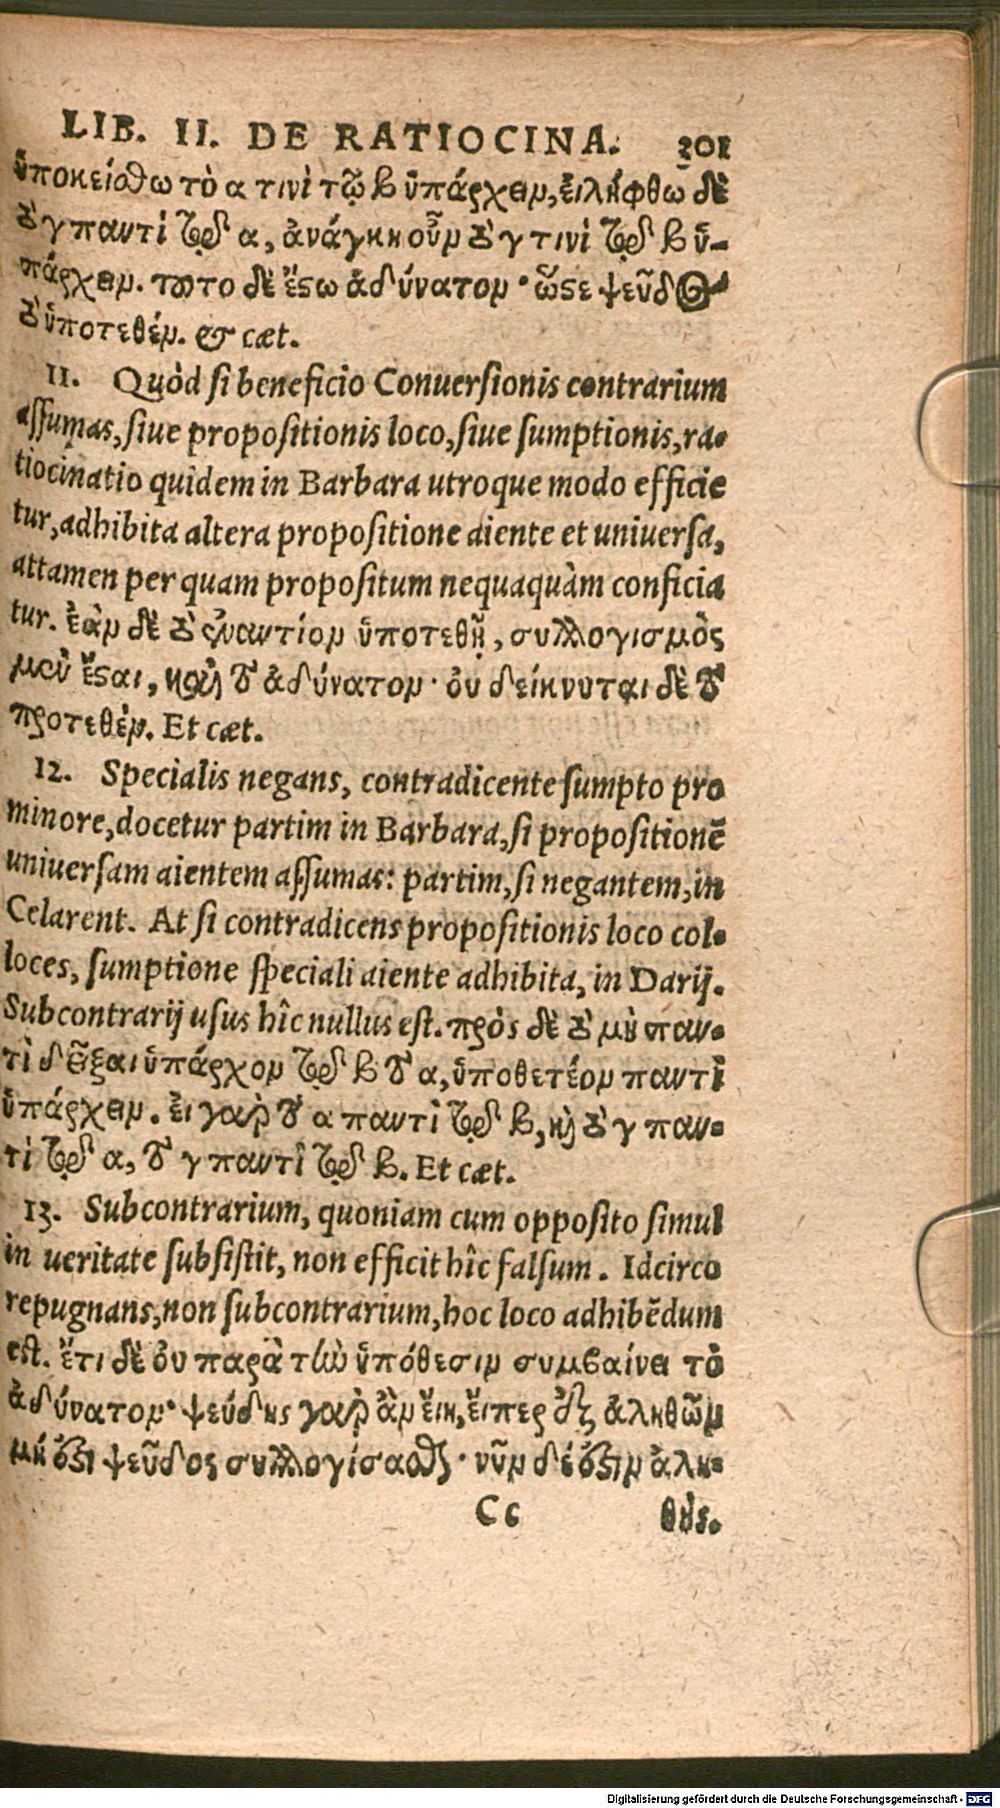 LIB. II. DE RATIOCINA. 201
ὑποκείσθω τὸ α τινὶ τῷ β ὑπάρχειν, εἰλήφθω δὲ
τὸ γ παντὶ τῷ α, ἀνάγκη οὖν τὸ γ τινὶ τῷ β ὑ-
πάρχειν. τοῦτο δὲ ἔστω ἀδύνατον· ὥστε ψεῦδος
τὸ ὑποτεθέν. & cæt.
11. Quòd si beneficio Conuersionis contrarium
assumas, siue propositionis loco, siue sumptionis, ra-
tiocinatio quidem in Barbara utroque modo efficie
tur, adhibita altera propositione aiente et uniuersa,
attamen per quam propositum nequaquàm conficia
tur. ἐὰν δὲ τὸ ἐναντίον ὑποτεθῇ, συλλογισμὸς
μὲν ἔσται, καὶ τὸ ἀδύνατον· οὐ δείκνυται δὲ τὸ
προτεθέν. Et cæt.
12. Specialis negans, contradicente sumpto pro
minore, docetur partim in Barbara, si propositionẽ
uniuersam aientem assumas: partim, si negantem, in
Celarent. At si contradicens propositionis loco col-
loces, sumptione speciali aiente adhibita, in Darij.
Subcontrarij usus hîc nullus est. πρὸς δὲ τὸ μὴ παν-
τὶ δεῖξαι ὑπάρχον τῷ β τὸ α, ὑποθετέον παντὶ
ὑπάρχειν. εἰ γὰρ τὸ α παντὶ τῷ β, καὶ τὸ γ παν-
τὶ τῷ α, τὸ γ παντὶ τῷ β. Et cæt.
13. Subcontrarium, quoniam cum opposito simul
in ueritate subsistit, non efficit hîc falsum. Idcirco
repugnans, non subcontrarium, hoc loco adhibẽdum
est. ἔτι δὲ οὐ παρὰ τὴν ὑπόθεσιν συμβαίνει τὸ
ἀδύνατον· ψεύδης γὰρ ἂν εἴη, εἴπερ ἐξ ἀληθῶν
μή ἐστι ψεῦδος συλλογίσασθαι· νῦν δέ ἐστιν ἀλη-
Cc θής.
Digitalisierung gefördert durch die Deutsche Forschungsgemeinschaft - DFG